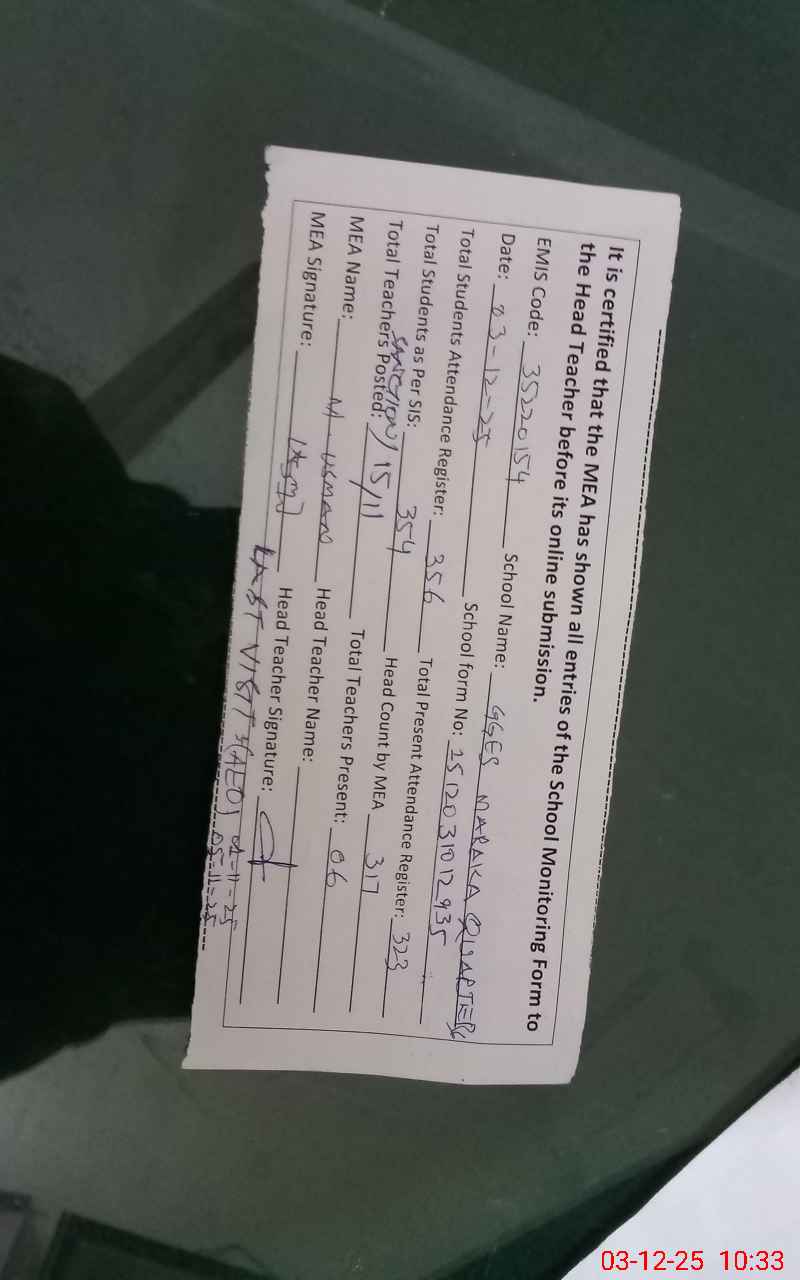 It is certified that the MEA has shown all entries of the School Monitoring Form to
the Head Teacher before its online submission.
EMIS Code: 35220154 School Name: GGES MARAKA QUARTERS
Date: 03-12-25 School form No: 2512031012935
Total Students Attendance Register: 356 Total Present Attendance Register: 323
Total Students as Per SIS: 354 Head Count by MEA 317
Total Teachers Posted: SANCTION/ 15/11 Total Teachers Present: 06
MEA Name: M-USMAN Head Teacher Name:
MEA Signature: Head Teacher Signature:
LAST VISIT (AEO) -11-25
05-11-25
03-12-25 10:33